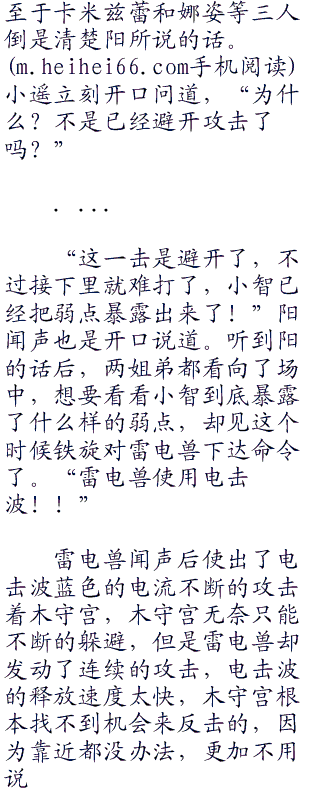 至于卡米兹蕾和娜姿等三人
倒是清楚阳所说的话。
(m.heihei66.com手机阅读)
小遥立刻开口问道，“为什
么？不是已经避开攻击了
吗？”
. ...
“这一击是避开了，不
过接下里就难打了，小智已
经把弱点暴露出来了！”阳
闻声也是开口说道。听到阳
的话后，两姐弟都看向了场
中，想要看看小智到底暴露
了什么样的弱点，却见这个
时候铁旋对雷电兽下达命令
了。“雷电兽使用电击
波！！”
雷电兽闻声后使出了电
击波蓝色的电流不断的攻击
着木守宫，木守宫无奈只能
不断的躲避，但是雷电兽却
发动了连续的攻击，电击波
的释放速度太快，木守宫根
本找不到机会来反击的，因
为靠近都没办法，更加不用
说